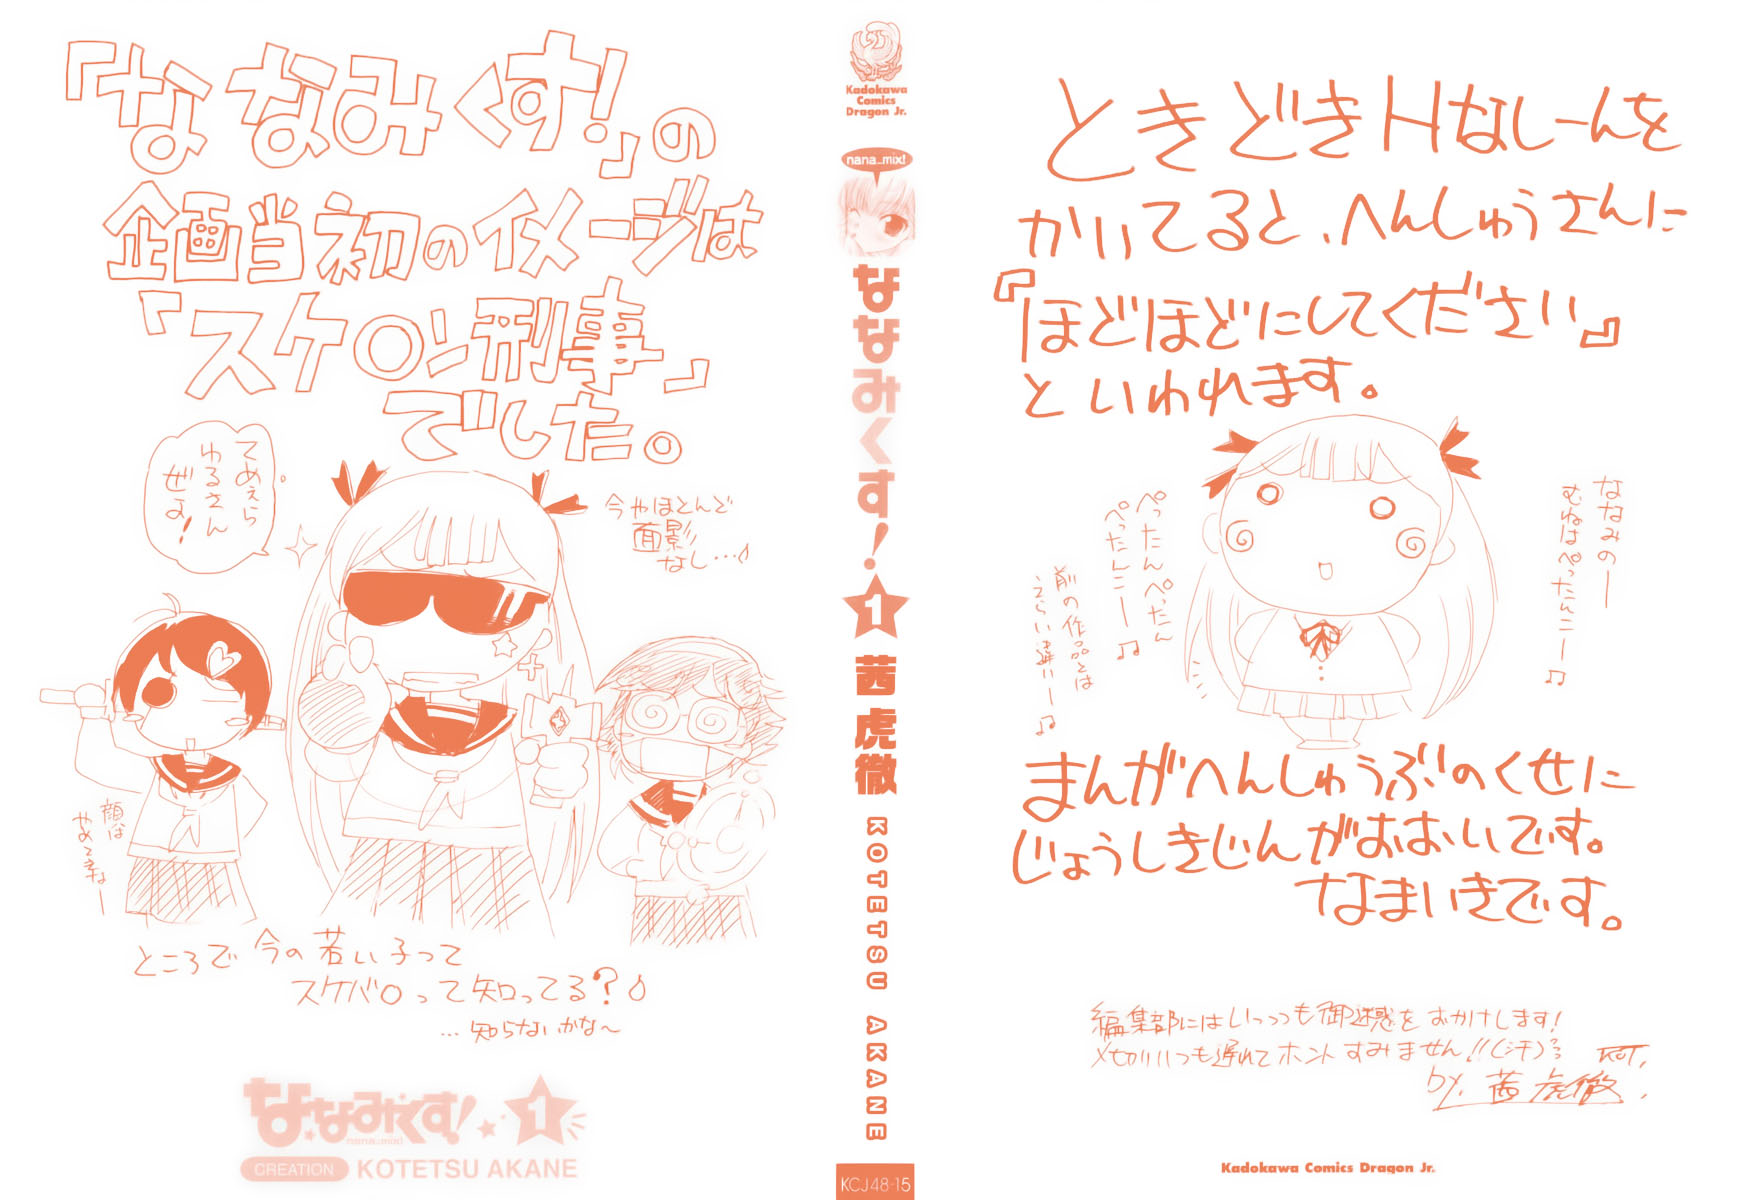 『ななみくす!』の
企画当初のイメージは
「スケ○ン刑事」
でした。
てめぇら
ゆるさん
ぜよ!
今やほとんど
面影
なし…
顔は
やめてネー
ところで今の若い子って
スケバ○って知ってる?
…知らないかな〜
ななみくす!
nana_mix!
1
CREATION
KOTETSU AKANE
Kadokawa
Comics
Dragon Jr.
nana_mix!
ななみくす!
1
茜虎徹
KOTETSU AKANE
KCJ48-15
ときどきHなしーんを
かいてると、へんしゅうさんに
『ほどほどにしてください』
といわれます。
ななみのー
むねはぺったんこー♫
ぺったんぺったん
ぺったんこー♫
前の作品とは
えらい違いー♫
まんがへんしゅうぶのくせに
じょうしきじんがおおいです。
なまいきです。
編集部にはいっつも御迷惑をおかけします!
〆切りいつも遅れてホントすみません!!(汗)
KOT.
by. 茜虎徹.
Kadokawa Comics Dragon Jr.